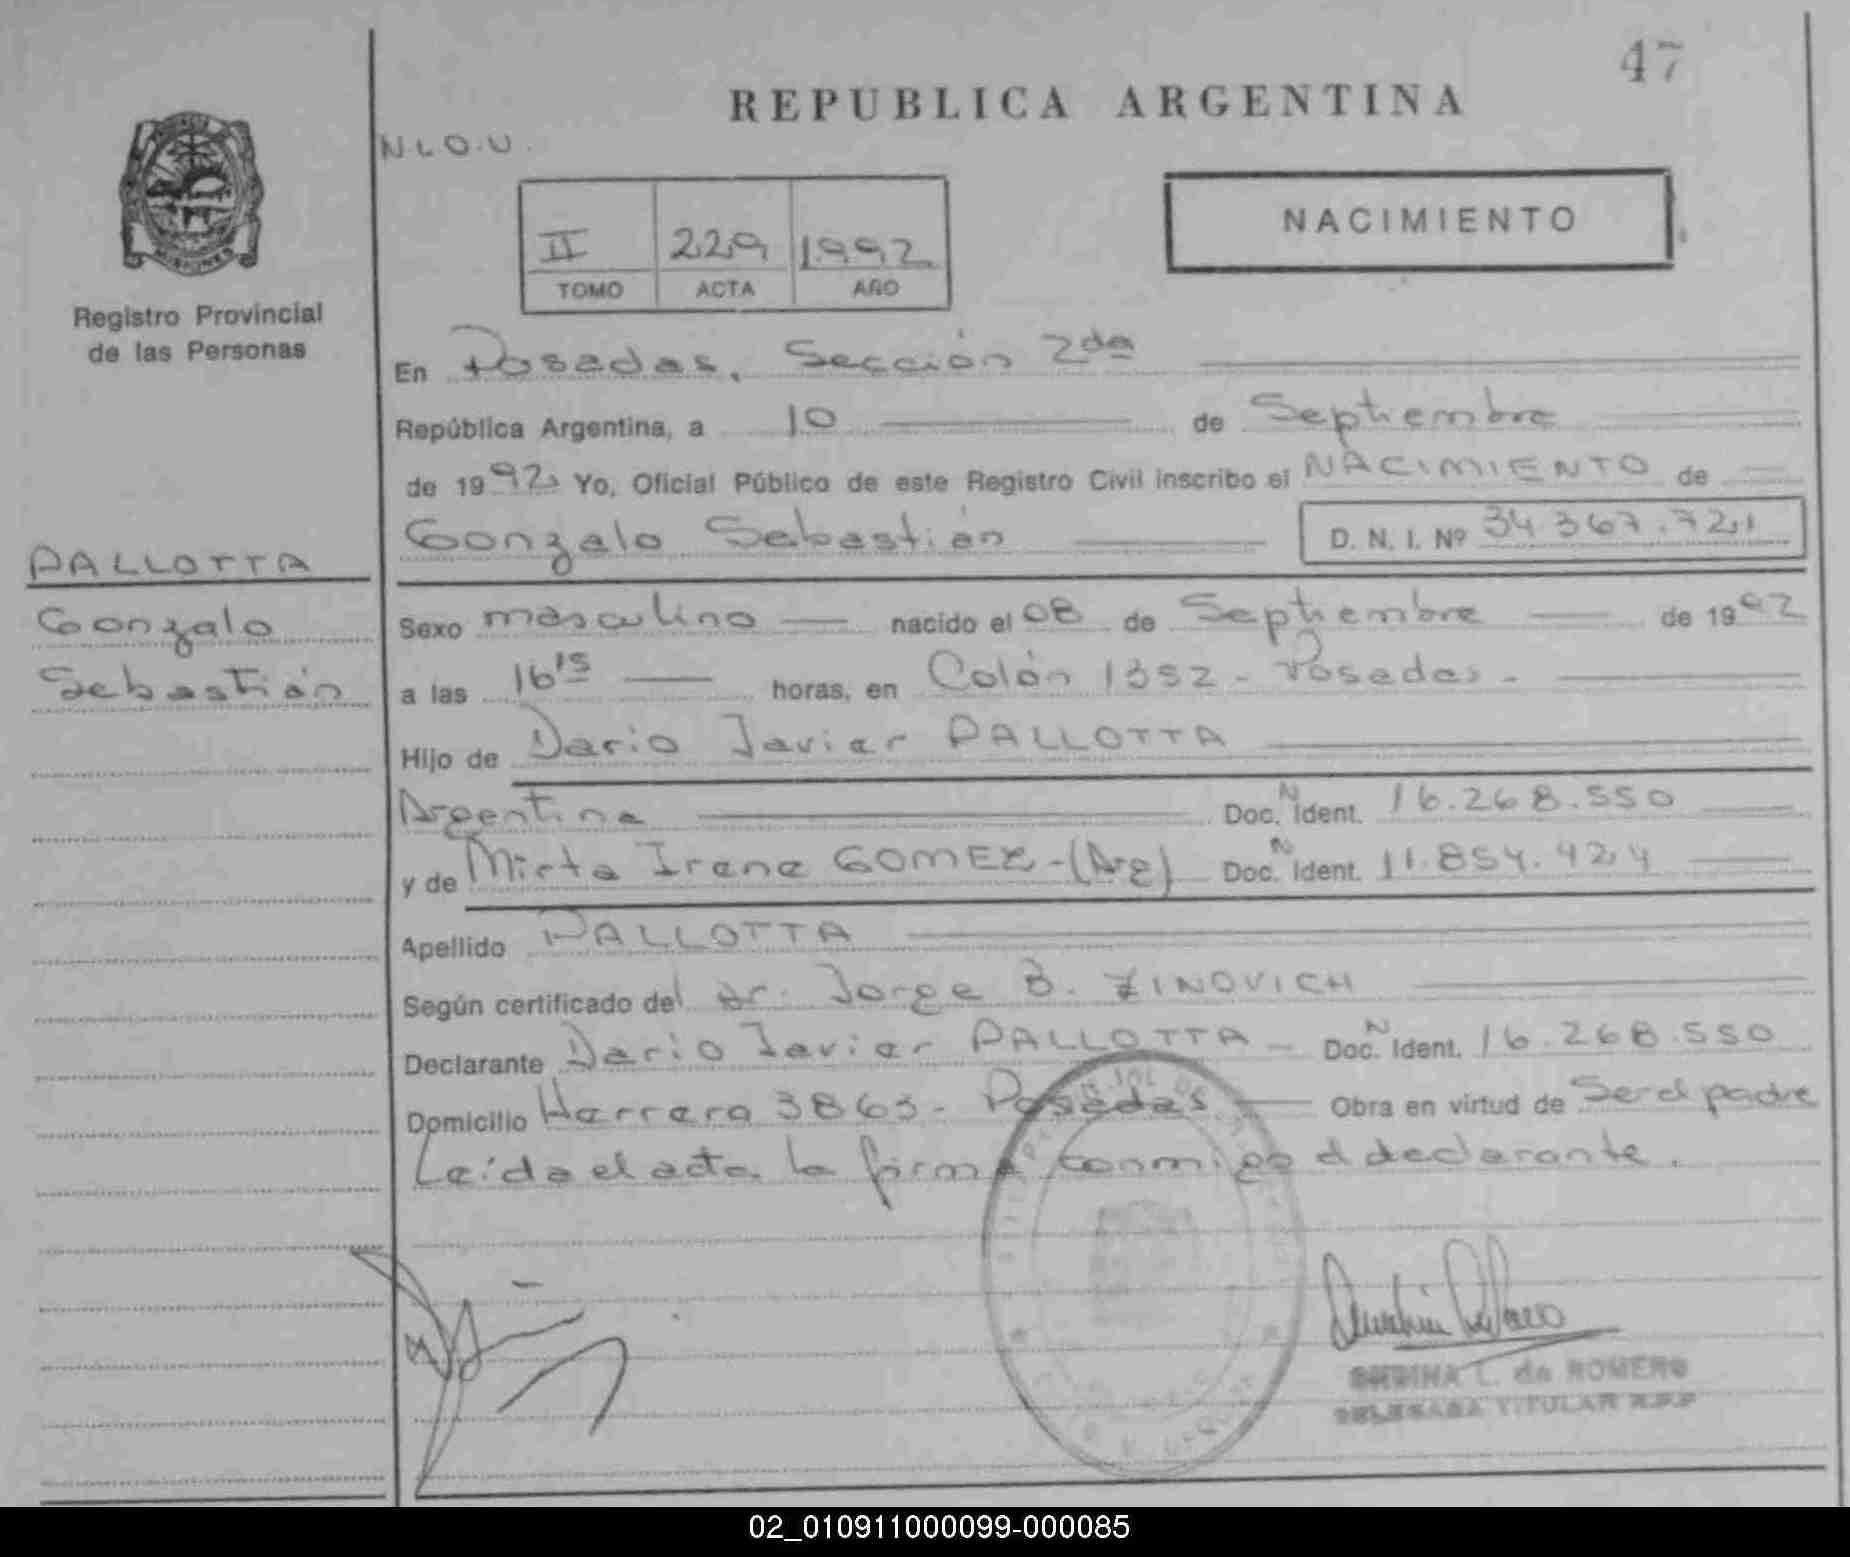 47
REPUBLICA ARGENTINA
N.L.O.U.
NACIMIENTO
II 229 1992
TOMO ACTA AÑO
MISIONES
Registro Provincial
de las Personas
En Posadas, Sección 2da
República Argentina, a 10 de Septiembre
de 1992, Yo, Oficial Público de este Registro Civil inscribo el NACIMIENTO de
Gonzalo Sebastián D. N. I. Nº 34.367.721
PALLOTTA
Gonzalo
Sebastián
Sexo masculino nacido el 08 de Septiembre de 1992
a las 16 15 horas, en Colón 1352 - Posadas -
Hijo de Dario Javier PALLOTTA
Argentina Doc. N Ident. 16.268.550
y de Mirta Irene GOMEZ - (Arg) Doc. N Ident. 11.854.424
Apellido PALLOTTA
Según certificado del Dr. Jorge B. ZINOVICH
Declarante Dario Javier PALLOTTA - Doc. N Ident. 16.268.550
Domicilio Herrera 3863 - Posadas - Obra en virtud de Ser el padre
Leída el acta, la firma conmigo el declarante.
L. de ROMERO
DELEGADA TITULAR R.P.P
02_010911000099-000085